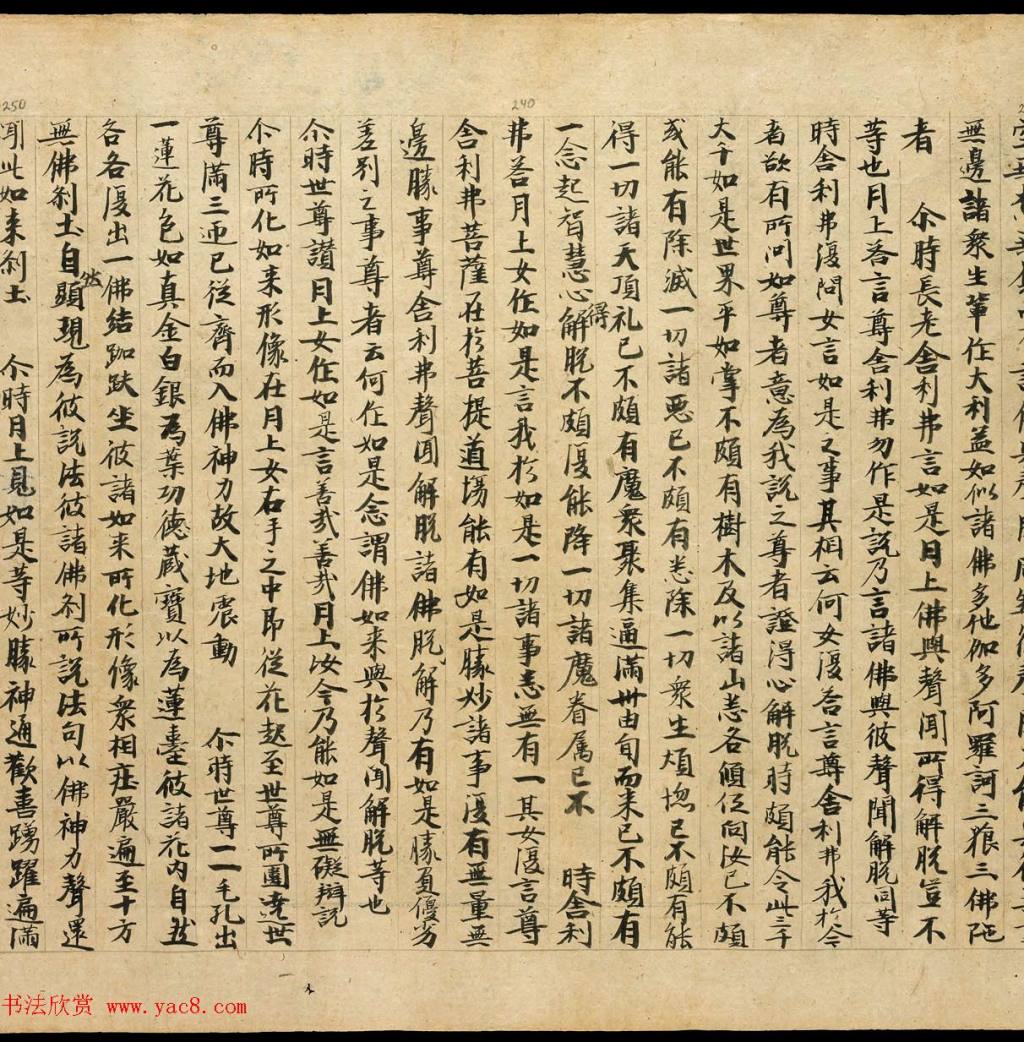 無邊諸衆生輩作大利益如似諸佛多他伽多阿羅訶三藐三佛陁
者 尒時長老舍利弗言如是月上佛與聲聞所得解脫豈不
等也月上荅言尊舍利弗勿作是說乃言諸佛與彼聲聞解脫同等
時舍利弗復問女言如是之事其相云何女復荅言尊舍利弗我於今
者欲有所問如尊者意為我說之尊者證得心解脫時頗能令此三千
大千如是世界平如掌不頗有樹木及以諸山悉各傾低向汝已不頗
或能有除滅一切諸惡已不頗有悉除一切衆生煩惱已不頗有能
得一切諸天頂礼已不頗有魔衆聚集遍滿卅由旬而来已不頗有
一念起智慧心得解脫不頗復能降一切諸魔眷属已不 時舍利
弗荅月上女作如是言我於如是一切諸事悉無有一其女復言尊
舍利弗菩薩在於菩提道場能有如是勝妙諸事復有無量無
邊勝事尊舍利弗聲聞解脫諸佛脫解乃有如是勝負優劣
差別之事尊者云何作如是念謂佛如来與於聲聞解脫等也
尒時世尊讃月上女作如是言善哉善哉月上汝今乃能如是無礙辯說
尒時所化如来形像在月上女右手之中即從花起至世尊所圍遶世
尊滿三迊已從齊而入佛神力故大地震動 尒時世尊一一毛孔出
一蓮花色如真金白銀為葉功德藏寶以為蓮臺彼諸花内自然
各各復出一佛結跏趺坐彼諸如来所化形像衆相莊嚴遍至十方
無佛刹土自然顯現為彼說法彼諸佛刹所說法句以佛神力聲還
聞此如来刹土 尒時月上見如是等妙勝神通歡喜踴躍遍滿
240
250
书法欣赏 www.yac8.com